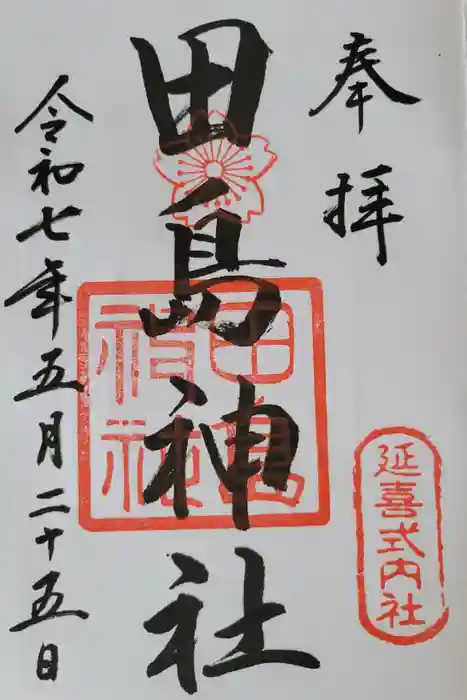 奉拝
延喜式内社
田島神社
田島神社
令和七年五月二十五日